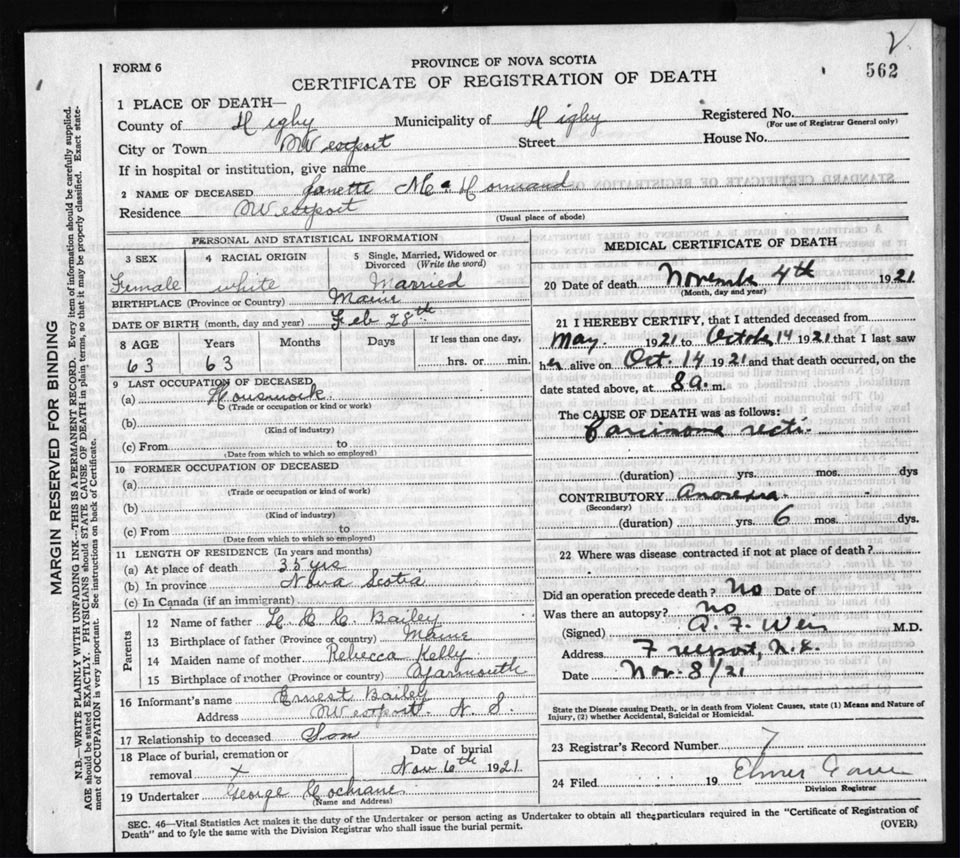 V.
562
FORM 6
PROVINCE OF NOVA SCOTIA
CERTIFICATE OF REGISTRATION OF DEATH
1 PLACE OF DEATH—
County of Digby Municipality of Digby Registered No.
(For use of Registrar General only)
City or Town Westport Street House No.
If in hospital or institution, give name
2 NAME OF DECEASED Janette McDormand
Residence Westport
(Usual place of abode)
PERSONAL AND STATISTICAL INFORMATION
3 SEX 4 RACIAL ORIGIN 5 Single, Married, Widowed or Divorced (Write the word)
Female white Married
BIRTHPLACE (Province or Country) Maine
DATE OF BIRTH (month, day and year) Feb 28th
8 AGE Years Months Days If less than one day,
63 63 hrs. or min.
9 LAST OCCUPATION OF DECEASED
(a) Houswork
(Trade or occupation or kind or work)
(b)
(Kind of industry)
(c) From to
(Date from which to which so employed)
10 FORMER OCCUPATION OF DECEASED
(a)
(Trade or occupation or kind of work)
(b)
(Kind of industry)
(c) From to
(Date from which to which so employed)
11 LENGTH OF RESIDENCE (In years and months)
(a) At place of death 35 yrs
(b) In province Nova Scotia
(c) In Canada (if an immigrant)
Parents
12 Name of father Bailey
13 Birthplace of father (Province or country) Maine
14 Maiden name of mother Rebecca Kelly
15 Birthplace of mother (Province or country) Yarmouth
16 Informant's name Ernest Bailey
Address Westport. N. S.
17 Relationship to deceased Son
18 Place of burial, cremation or removal x
Date of burial
Nov 6th 1921
19 Undertaker George Cochrane
(Name and Address)
MEDICAL CERTIFICATE OF DEATH
20 Date of death November 4th 1921
(Month, day and year)
21 I HEREBY CERTIFY, that I attended deceased from
May. 1921 to October 14 1921 that I last saw
her alive on Oct. 14 1921 and that death occurred, on the
date stated above, at 8 a. m.
The CAUSE OF DEATH was as follows:
Carcinoma recti.
(duration) yrs. mos. dys
CONTRIBUTORY Anorexia.
(Secondary)
(duration) yrs. 6 mos. dys.
22 Where was disease contracted if not at place of death?
Did an operation precede death? No Date of
Was there an autopsy? no
(Signed) A. F. Weir M.D.
Address Freeport, N.S.
Date Nov. 8/21
State the Disease causing Death, or in death from Violent Causes, state (1) Means and Nature of
Injury, (2) whether Accidental, Suicidal or Homicidal.
23 Registrar's Record Number 7
24 Filed 19 Elmer
Division Registrar
SEC. 46—Vital Statistics Act makes it the duty of the Undertaker or person acting as Undertaker to obtain all the particulars required in the "Certificate of Registration of
Death" and to fyle the same with the Division Registrar who shall issue the burial permit.
(OVER)
MARGIN RESERVED FOR BINDING
N.B.—WRITE PLAINLY WITH UNFADING INK—THIS IS A PERMANENT RECORD. Every item of information should be carefully supplied.
AGE should be stated EXACTLY. PHYSICIANS should STATE CAUSE OF DEATH in plain terms, so that it may be properly classified. Exact state-
ment of OCCUPATION is very important. See instructions on back of Certificate.